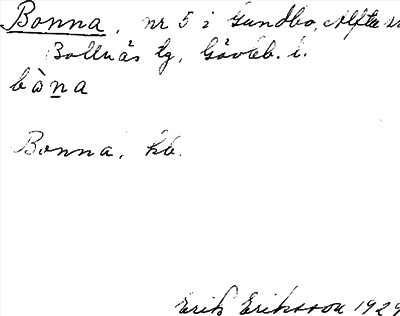 Bonna, nr 5 i Gundbo, Alfta sn
Bollnäs tg, Gävleb. l.
bàna
Bonna, kb.
Erik Eriksson 1929